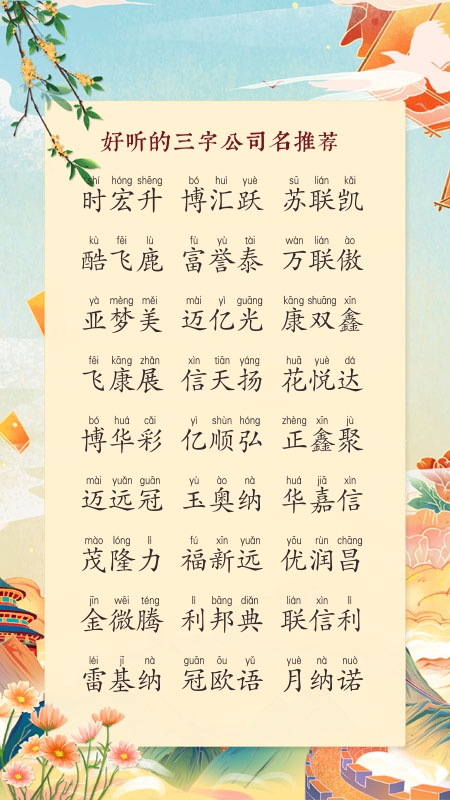 好听的三字公司名推荐
shí hóng shēng bó huì yuè sū lián kǎi
时宏升 博汇跃 苏联凯
kù fēi lù fù yù tài wàn lián ào
酷飞鹿 富誉泰 万联傲
yà mèng měi mài yì guāng kāng shuāng xīn
亚梦美 迈亿光 康双鑫
fēi kāng zhǎn xìn tiān yáng huā yuè dá
飞康展 信天扬 花悦达
bó huá cǎi yì shùn hóng zhèng xīn jù
博华彩 亿顺弘 正鑫聚
mài yuǎn guān yù ào nà huá jiā xìn
迈远冠 玉奥纳 华嘉信
mào lóng lì fú xīn yuǎn yōu rùn chāng
茂隆力 福新远 优润昌
jīn wēi téng lì bāng diǎn lián xìn lì
金微腾 利邦典 联信利
léi jī nà guān ōu yǔ yuè nà nuò
雷基纳 冠欧语 月纳诺